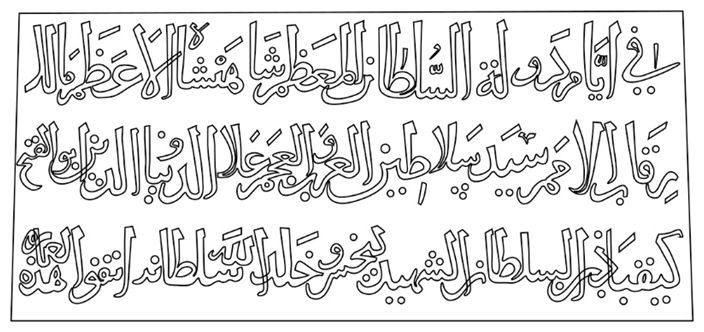 في ايام دولة السلطان المعظم شاهنشاه الاعظم مالك
رقاب الامم سيد سلاطين العرب والعجم علا الدنيا والدين ابو الفتح
كيقباذ بن السلطان الشهيد كيخسرو خلد الله سلطانه اتفقوا هذه